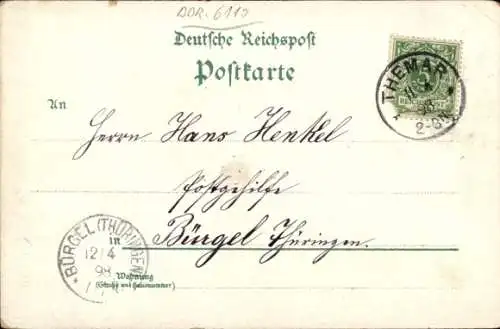 DDR. 6110
Deutsche Reichspost
Postkarte
THEMAR
98
2-3N.
An
Herrn Hans Henkel
Postgehilfe
in Bürgel Thüringen.
BÜRGEL (THÜRINGEN)
12/4
98
Wohnung
(Straße und Hausnummer)